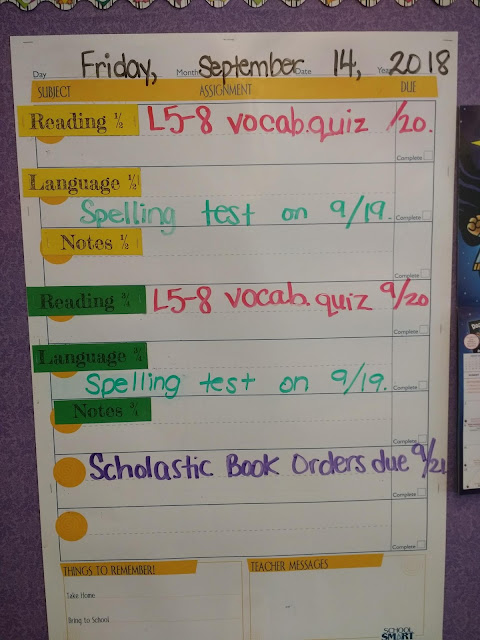 Day Friday, Month September Date 14, Year 2018
SUBJECT ASSIGNMENT DUE
Reading ½ L5-8 vocab. quiz 9/20.
Complete
Language ½
Spelling test on 9/19.
Complete
Notes ½
Complete
Reading ¾ L5-8 vocab. quiz 9/20
Complete
Language ¾
Spelling test on 9/19.
Complete
Notes ¾
Complete
Scholastic Book Orders due 9/21
Complete
Complete
THINGS TO REMEMBER! TEACHER MESSAGES
Take Home
Bring to School
SCHOOL
SMART